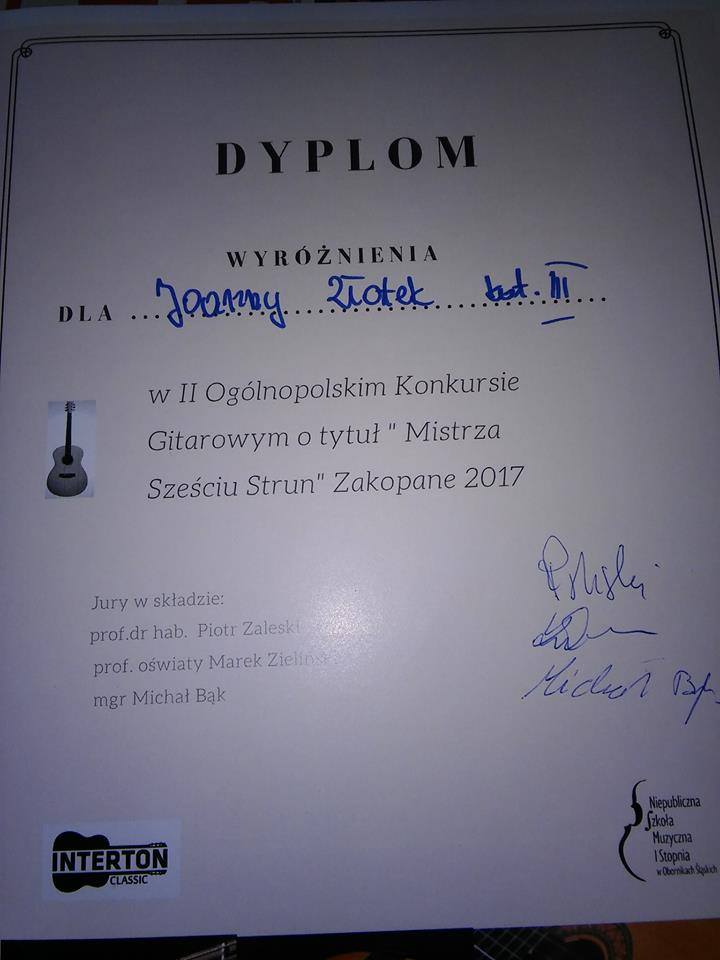 DYPLOM
WYRÓŻNIENIA
DLA ... Joanny Złotek kat. III
w II Ogólnopolskim Konkursie
Gitarowym o tytuł " Mistrza
Sześciu Strun" Zakopane 2017
Jury w składzie:
prof.dr hab. Piotr Zaleski
prof. oświaty Marek Zieliński
mgr Michał Bąk
Michał Bąk
INTERTON
CLASSIC
Niepubliczna
Szkoła
Muzyczna
I Stopnia
w Obornikach Śląskich